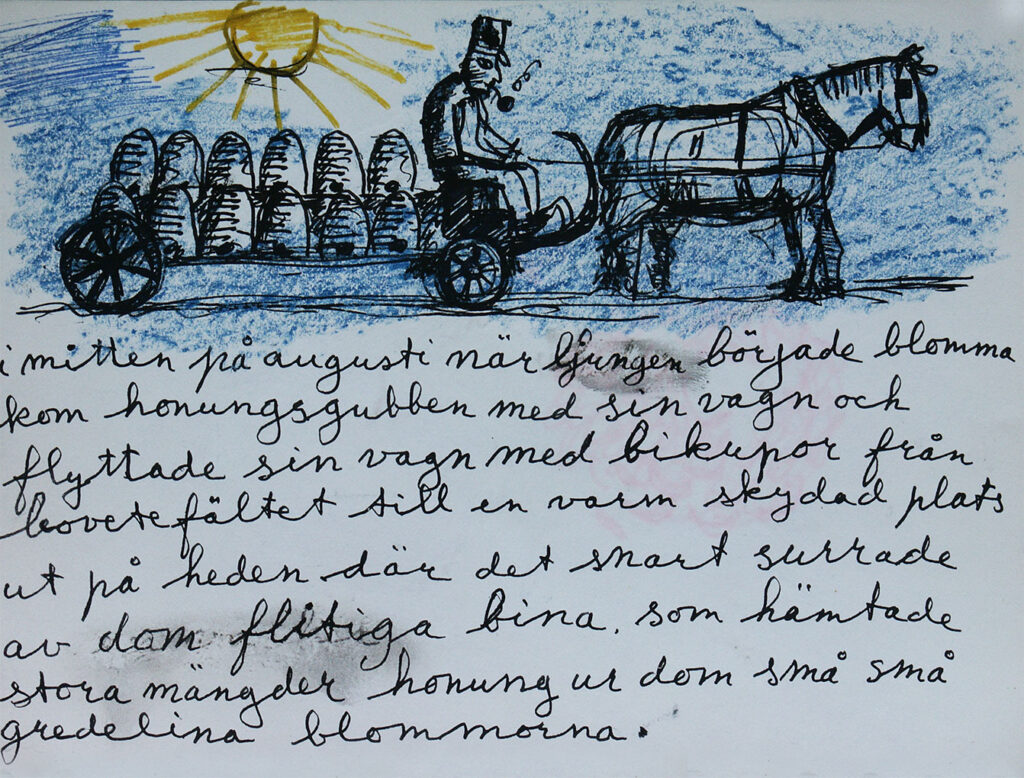 i mitten på augusti när ljungen började blomma
kom honungsgubben med sin vagn och
flyttade sin vagn med bikupor från
bovetefältet till en varm skydad plats
ut på heden där det snart surrade
av dom flitiga bina, som hämtade
stora mängder honung ur dom små små
gredelina blommorna.